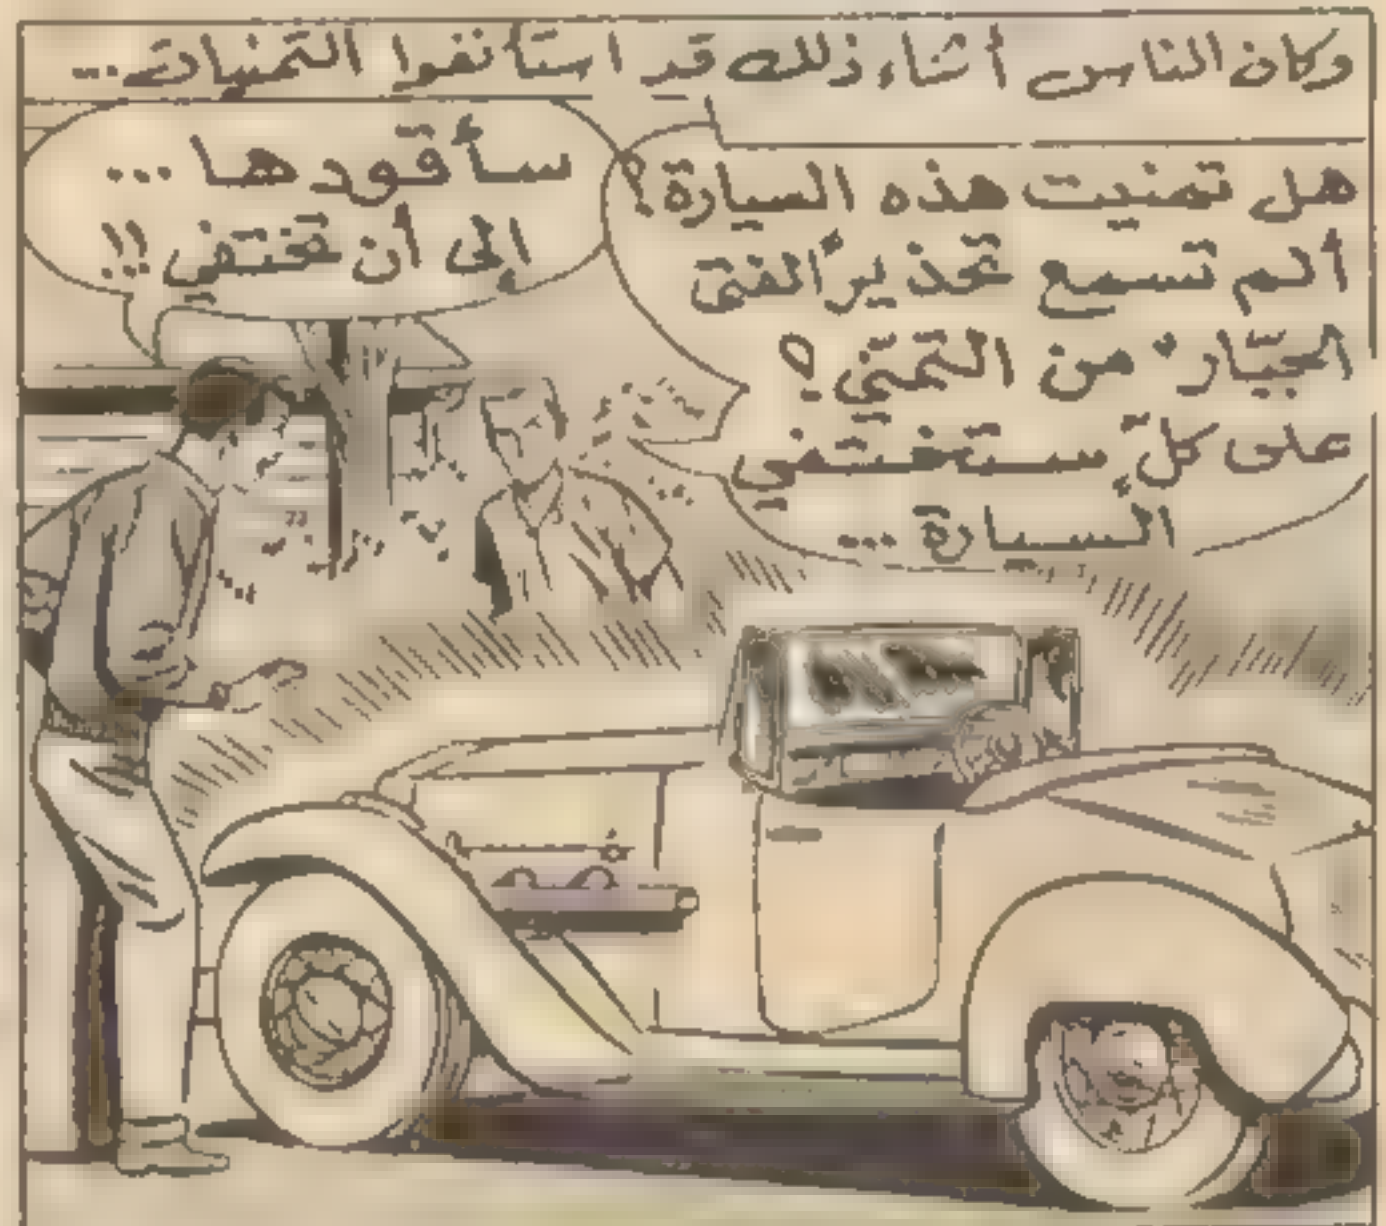 وكان الناس أثناء ذلك قد استأنفوا التمنيات...
هل تمنيت هذه السيارة؟
ألم تسمع تحذير الفتى
الجبّار من التمنّي؟
على كلّ ستختفي
السيارة...
سأقودها...
إلى أن تختفي!!